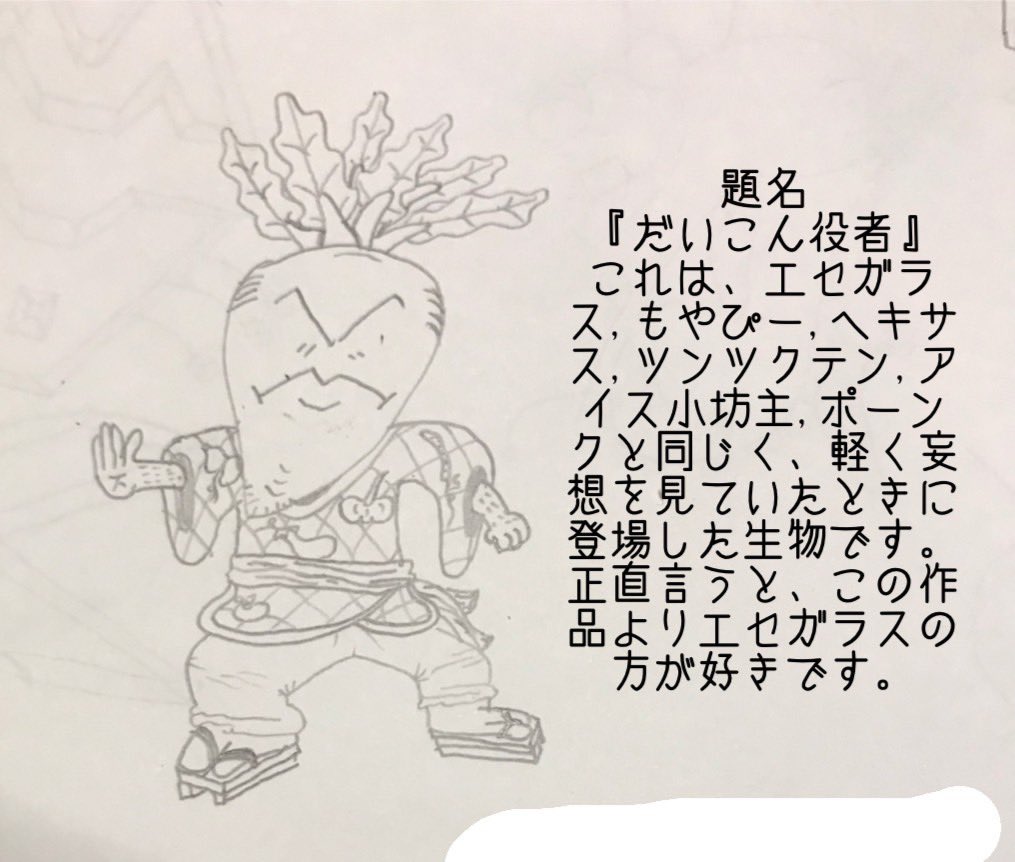 題名
『だいこん役者』
これは、エセガラ
ス,もやぴー,ヘキサ
ス,ツンツクテン,ア
イス小坊主,ポーン
クと同じく、軽く妄
想を見ていたときに
登場した生物です。
正直言うと、この作
品よりエセガラスの
方が好きです。